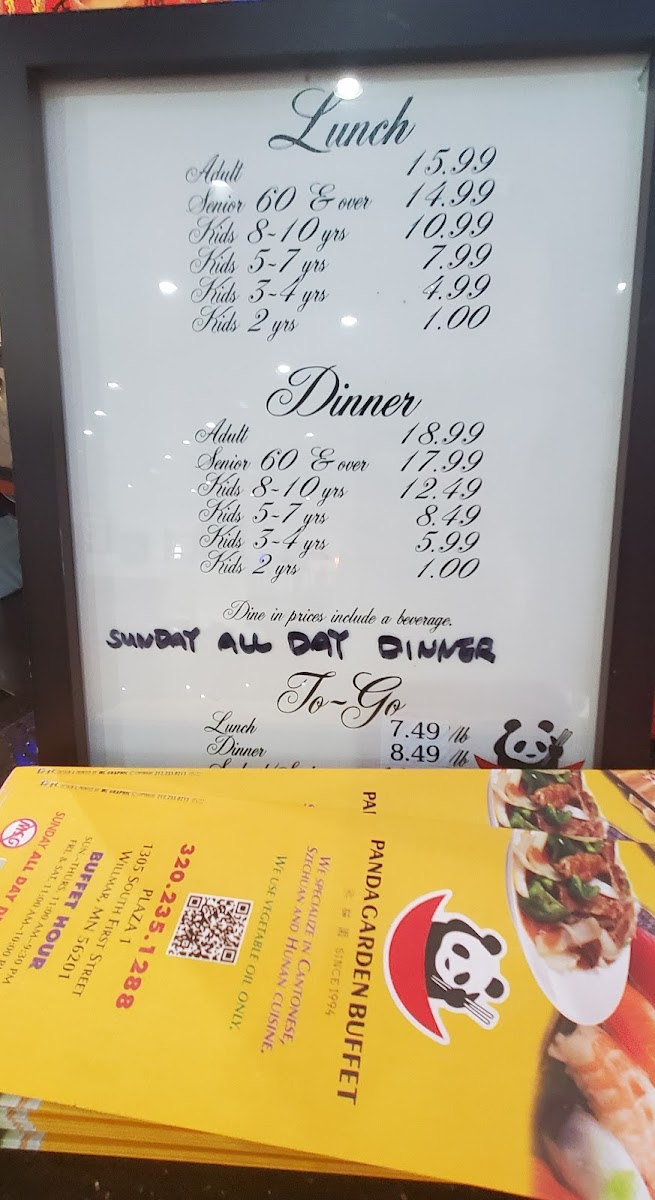 Lunch
Adult 15.99
Senior 60 & over 14.99
Kids 8-10 yrs 10.99
Kids 5-7 yrs 7.99
Kids 3-4 yrs 4.99
Kids 2 yrs 1.00
Dinner
Adult 18.99
Senior 60 & over 17.99
Kids 8-10 yrs 12.49
Kids 5-7 yrs 8.49
Kids 3-4 yrs 5.99
Kids 2 yrs 1.00
Dine in prices include a beverage.
SUNDAY ALL DAY DINNER
To-Go
Lunch 7.49 /lb
Dinner 8.49 /lb
PAI
PANDA GARDEN BUFFET
SINCE 1994
WE SPECIALIZE IN CANTONESE,
SZECHUAN AND HUNAN CUISINE.
WE USE VEGETABLE OIL ONLY.
320.235.1288
PLAZA 1
1305 SOUTH FIRST STREET
WILLMAR, MN 56201
BUFFET HOUR
SUN.-THURS. 11:00 AM-9:30 PM
FRI. & SAT. 11:00 AM-10:00 PM
SUNDAY ALL DAY D
MSG